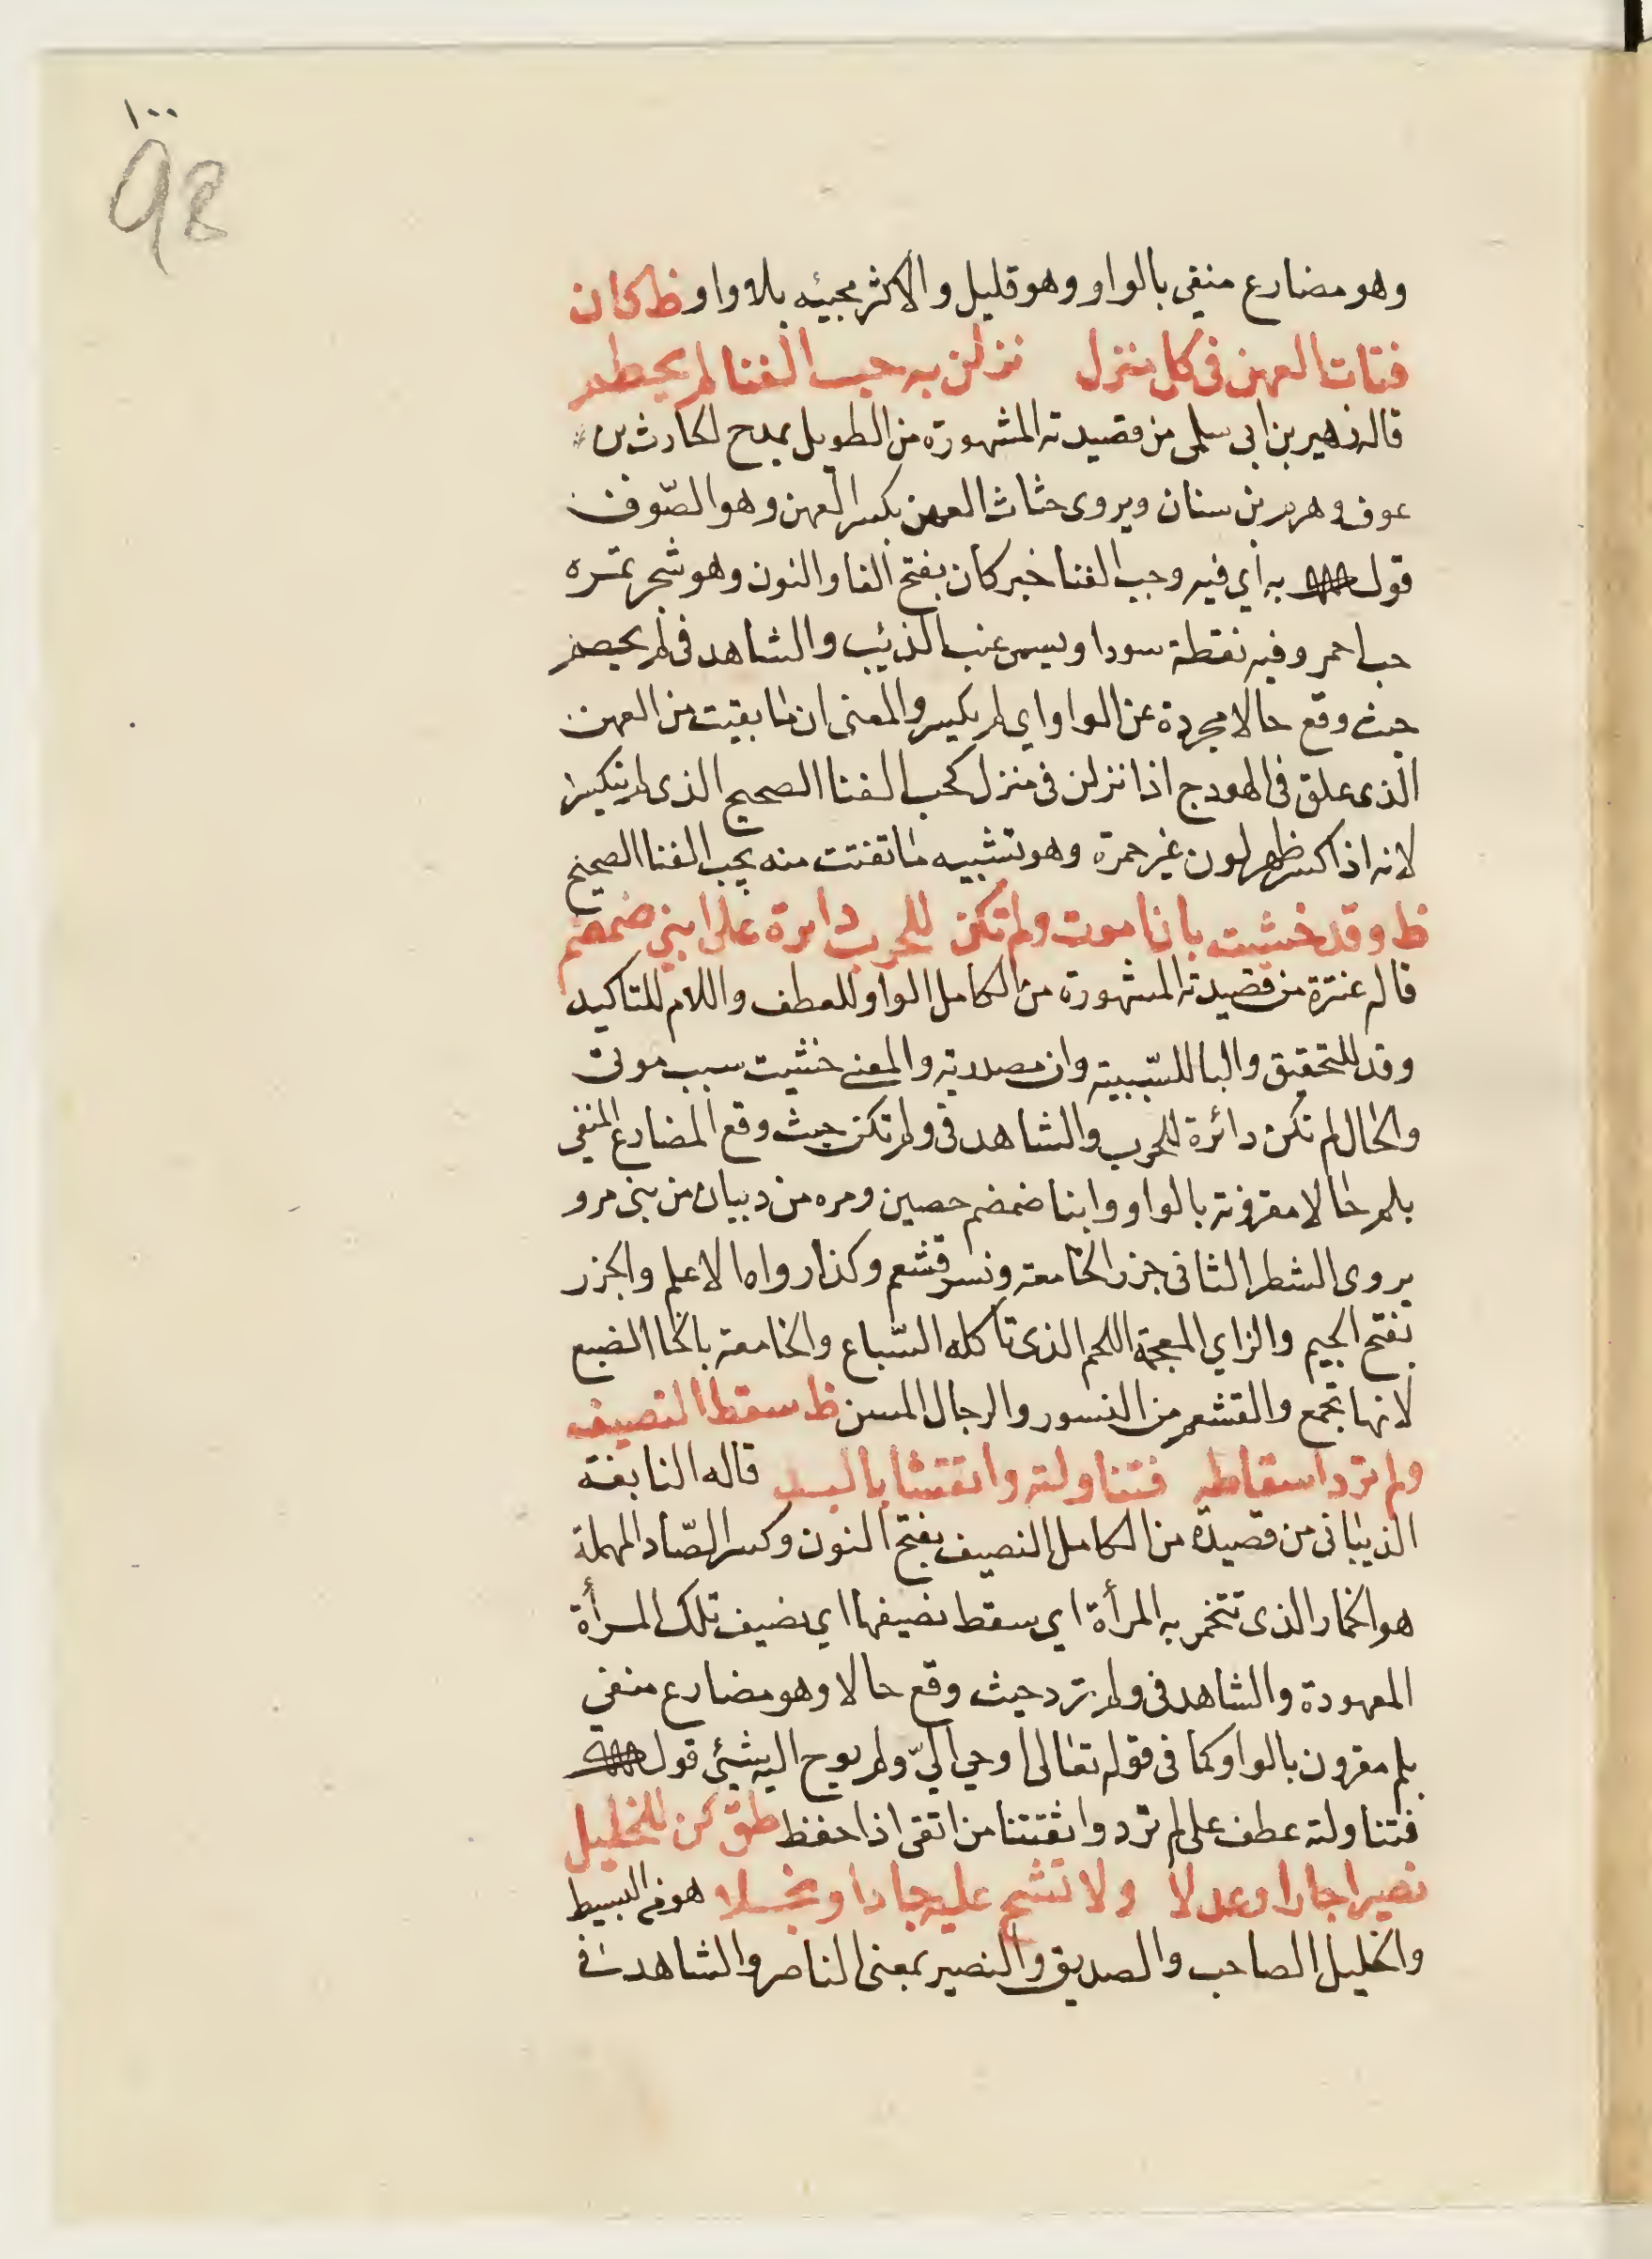 ١٠٠
98
وهو مضارع منفى بالواو وهو قليل والاكثر مجيئه بلا واو ظ كان
فتات العهن فى كل منزل نزلن به حب الفنا لم يحطم
قاله زهير بن ابى سلمى من قصيدته المشهورة من الطويل يمدح الحارث بن
عوف وهرم بن سنان ويروى حثاث العهن بكسر العهن وهو الصّوف
قول به اي فيه وحب الفنا خبر كان بفتح الفا والنون وهو شجر ثمره
حب احمر وفيه نقطة سودا ويسمى عنب الذئب والشاهد فى لم يحصم
حيث وقع حالا مجردة عن الواو اي لم يكسر والمعنى ان ما بقيت من العهن
الذى علق فى الهودج اذا نزلن فى منزل كحب الفنا الصحيح الذى لم ينكسر
لانه اذا كسر ظهر لون غير حمرة وهو تشبيه ما تفتت منه بحب الفنا الصحيح
ظ وقد خشيت بان اموت ولم تكن للحرب دايرة على ابنى ضمضم
قاله عنترة من قصيدته المشهورة من الكامل الواو للعطف واللام للتاكيد
وقد للتحقيق والبا للسّببية وان مصدرية والمعنى خشيت سبب موتى
والحال لم تكن دائرة للحرب والشاهد فى ولم تكن حيث وقع المضارع المنفي
بلم حالا مقرونة بالواو وابنا ضمضم حصين ومره من دبيان من بنى مرو
يروى الشطر الثانى جزر الخامعة ونسر قشعم وكذا رواه الاعلم والجزر
بفتح الجيم والزاي المعجمة اللحم الذى تاكله السّباع والخامعة بالخا الضبع
لانها تجمع والقشعم من النسور والرجال المسن ظ سقط النصيف
ولم ترد اسقاطه فتناولته واتقتنا باليد قاله النابغة
الذبيانى من قصيدة من الكامل النصيف بفتح النون وكسر الصّاد المهملة
هو الخمار الذى تتخمر به المرأة اي سقط نصيفها اي نصيف تلك المرأة
المعهودة والشاهد فى ولم ترد حيث وقع حالا وهو مضارع منفي
بلم مقرون بالواو كما فى قوله تعالى اوحي اليّ ولم يوح اليه شيئ قول
فتناولته عطف على لم ترد واتقتنا من اتقى اذا حفظ طق كن للخليل
نصيرا جارا وعدلا ولا تشح عليه جادا وبخلا هو من البسيط
والخليل الصاحب والصديق والنصير بمعنى الناصر والشاهد فى